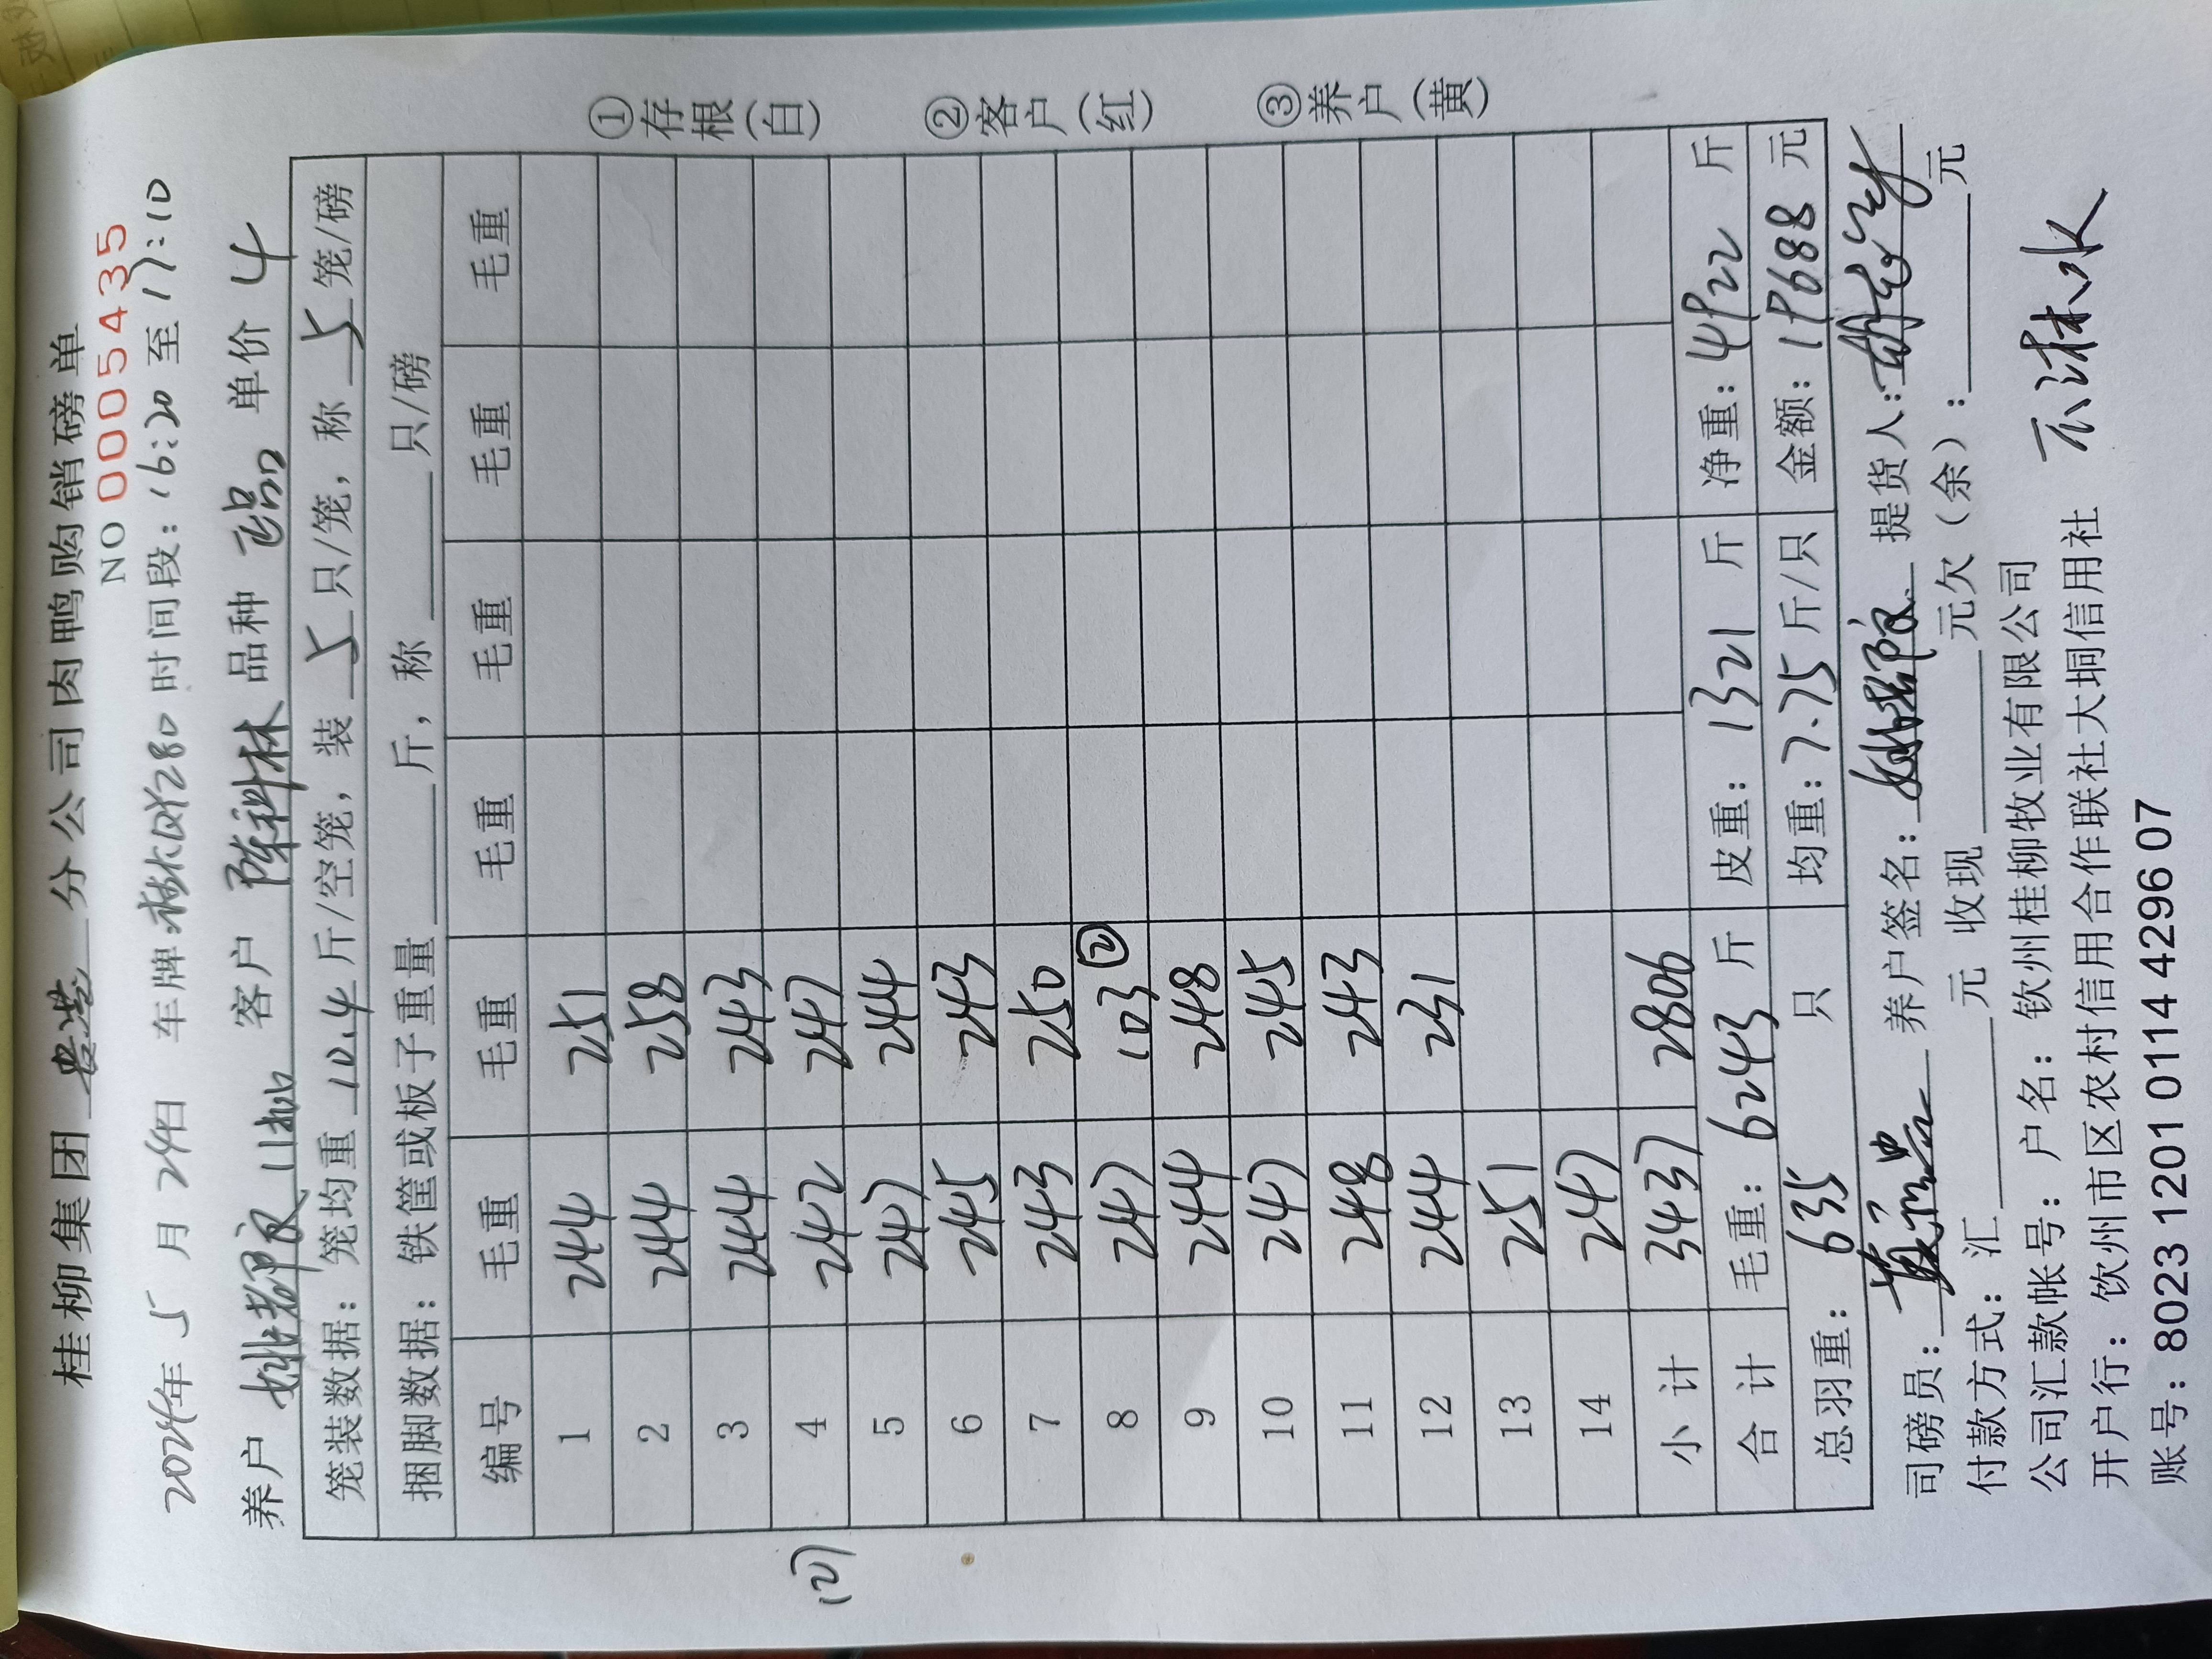 桂柳集团 贵港 分公司肉鸭购销磅单
NO 0005435
2024年 5 月 24日 车牌 桂KQY280 时间段：16:20 至 17:10
养户 客户 陈科林 品种 正品 单价 4
笼装数据：笼均重 10.4 斤/空笼，装 5 只/笼，称 5 笼/磅
捆脚数据：铁筐或板子重量 斤，称 只/磅
编号 毛重 毛重 毛重 毛重 毛重 毛重
1 244 251
2 244 258
3 244 243
4 242 247
5 247 244
6 245 243
7 243 250
8 247 103 ②
9 244 248
10 247 245
11 248 243
12 244 231
13 251
14 247
小 计 3437 2806
合 计 毛重：6243 斤 皮重：1321 斤 净重：4922 斤
总羽重：635 只 均重：7.75 斤/只 金额：19688 元
司磅员： 养户签名： 提货人：
付款方式：汇 元 收现 元欠（余）： 元
公司汇款帐号：户名：钦州桂柳牧业有限公司
开户行：钦州市区农村信用合作联社大垌信用社
账号：8023 1201 0114 4296 07
①存根(白)
②客户(红)
③养户(黄)
(2)